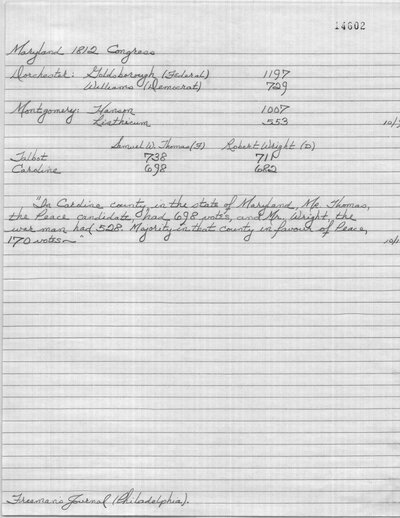 14602
Maryland 1812 Congress
Dorchester: Goldsborough (Federal) 1197
Williams (Democrat) 729
Montgomery: Hanson 1007
Linthicum 553
10/
Samuel W. Thomas (F) Robert Wright (D)
Talbot 738 711
Caroline 698 682
"In Caroline county, in the state of Maryland, Mr. Thomas,
the Peace candidate, had 698 votes, and Mr. Wright, the
war man had 528. Majority in that county in favour of Peace,
170 votes~"
10/1
Freeman's Journal (Philadelphia).